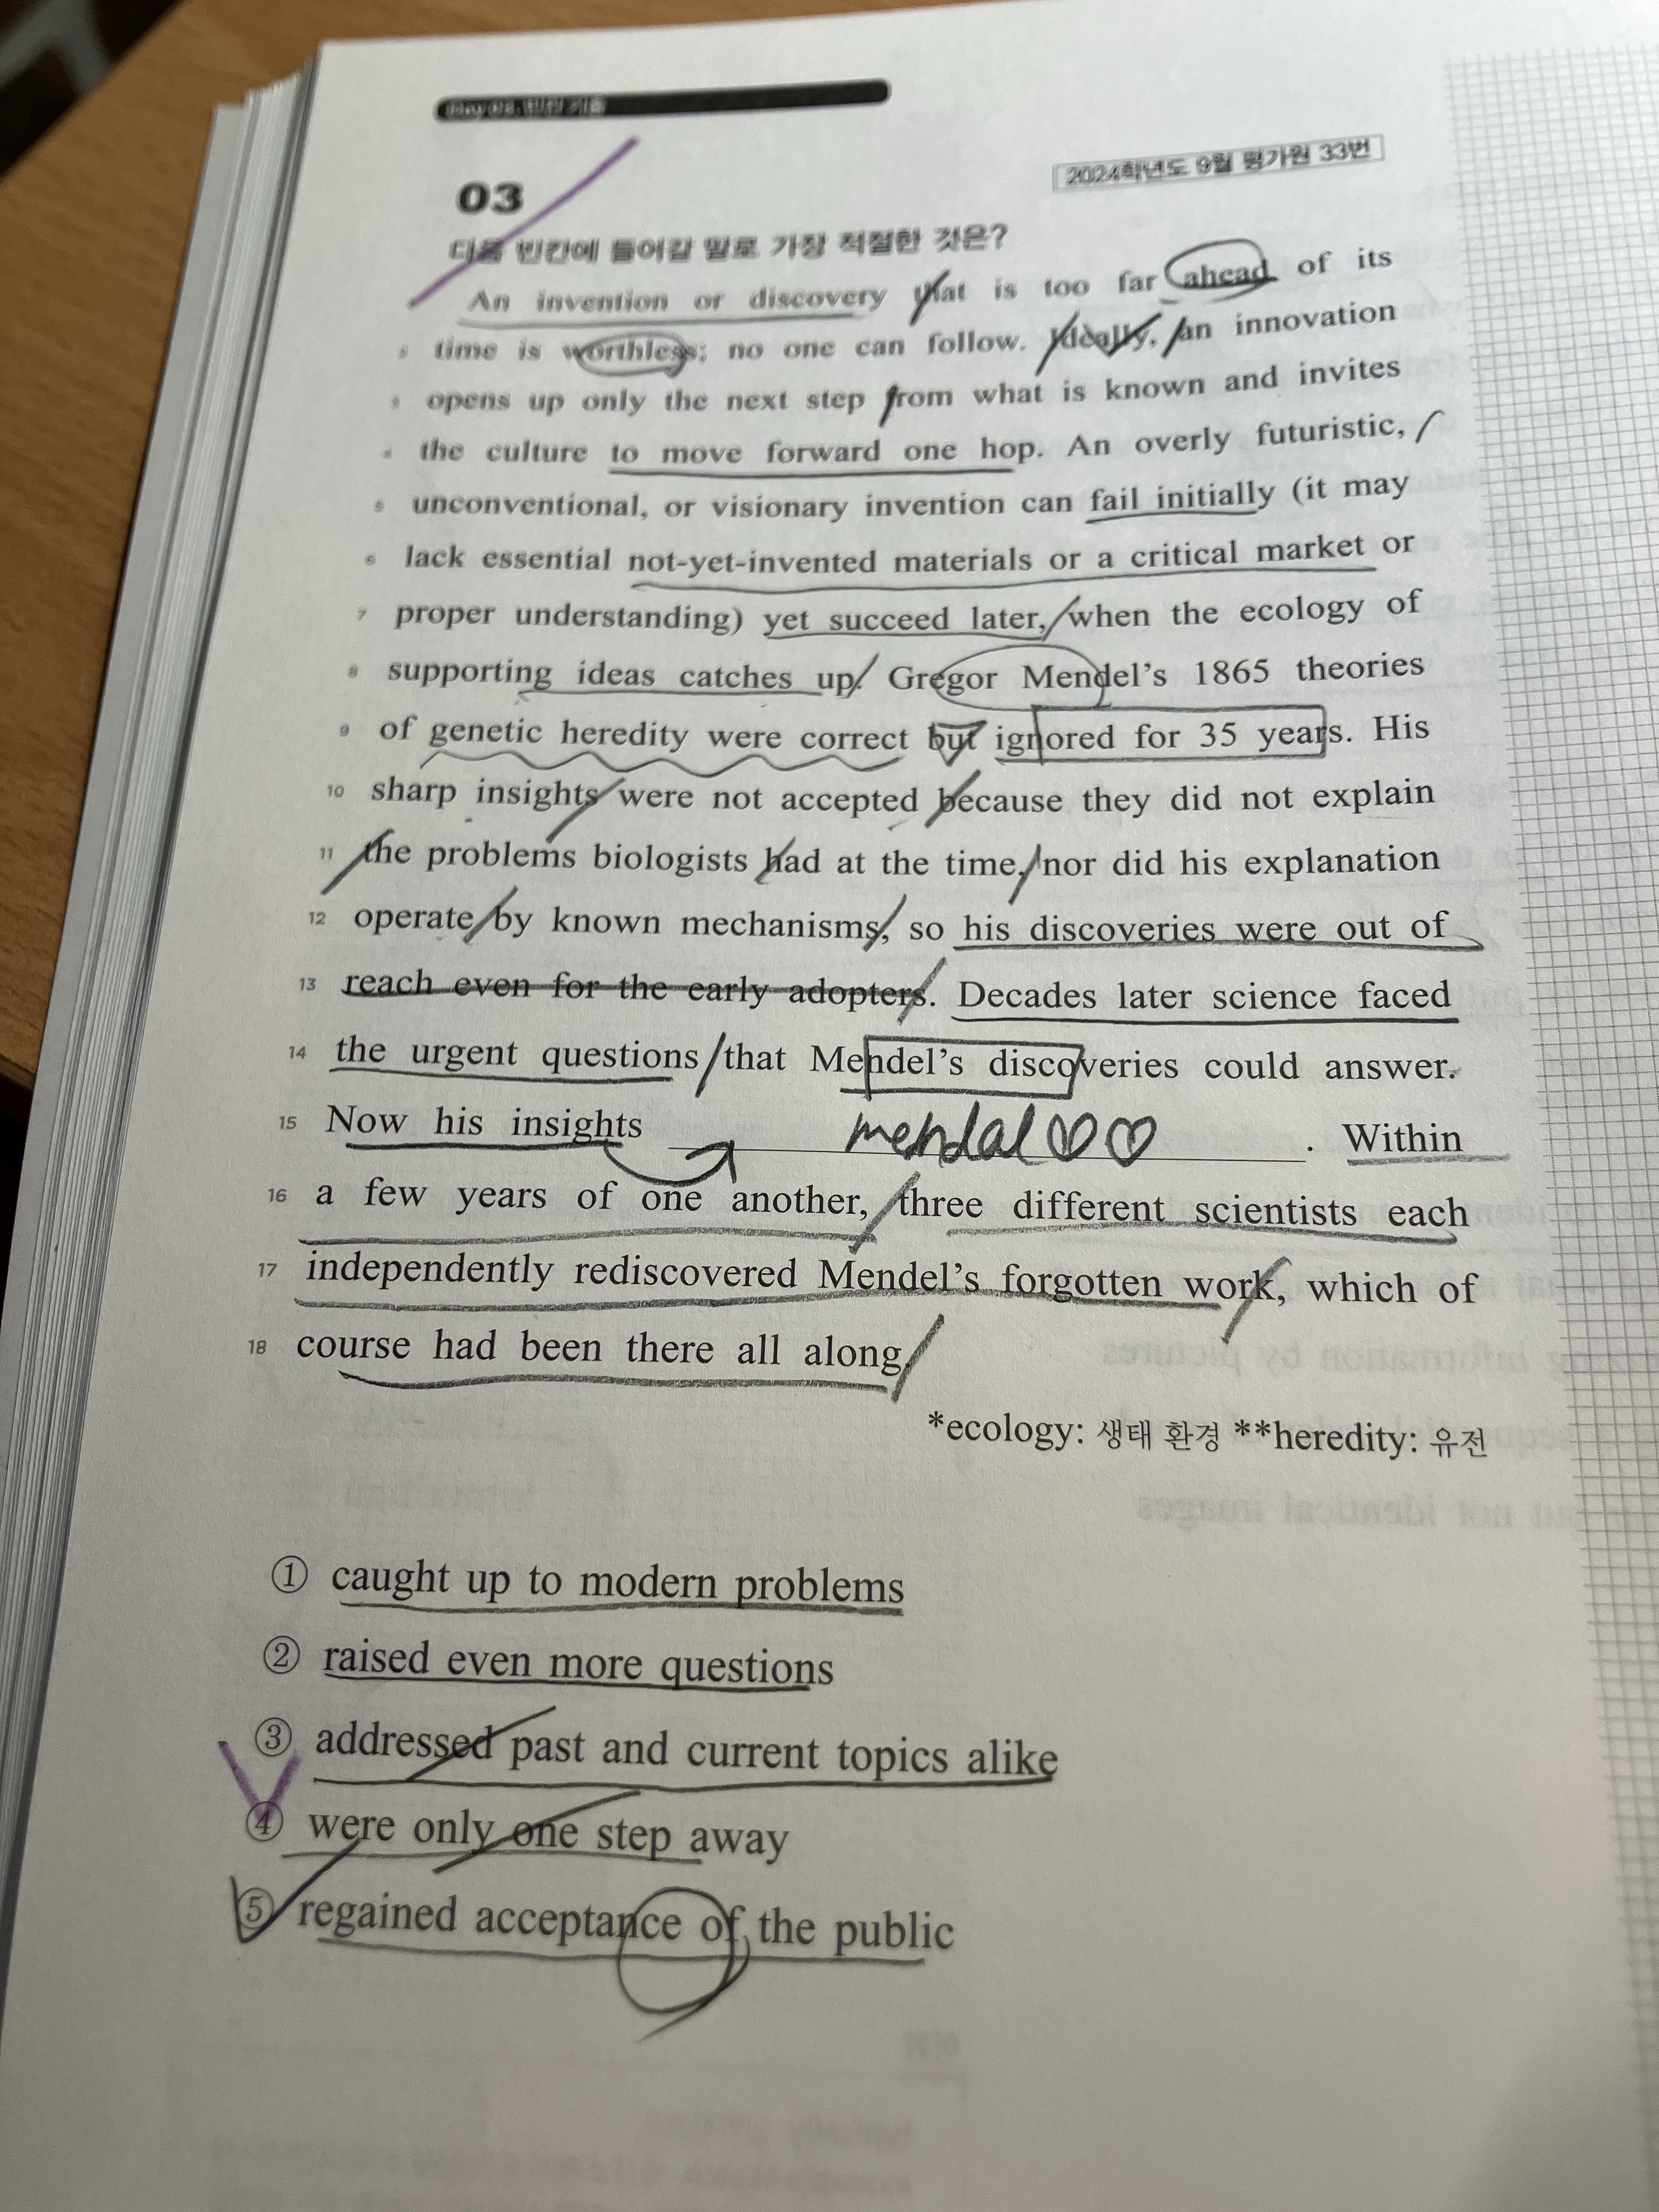 2024학년도 9월 평가원 33번
03
다음 빈칸에 들어갈 말로 가장 적절한 것은?
An invention or discovery that is too far ahead of its
time is worthless; no one can follow. Ideally, an innovation
opens up only the next step from what is known and invites
the culture to move forward one hop. An overly futuristic,
5 unconventional, or visionary invention can fail initially (it may
6 lack essential not-yet-invented materials or a critical market or
7 proper understanding) yet succeed later, when the ecology of
8 supporting ideas catches up. Gregor Mendel's 1865 theories
9 of genetic heredity were correct but ignored for 35 years. His
10 sharp insights were not accepted because they did not explain
11 the problems biologists had at the time, nor did his explanation
12 operate by known mechanisms, so his discoveries were out of
13 reach even for the early adopters. Decades later science faced
14 the urgent questions that Mendel's discoveries could answer.
15 Now his insights mendal♡♡. Within
16 a few years of one another, three different scientists each
17 independently rediscovered Mendel's forgotten work, which of
18 course had been there all along.
*ecology: 생태 환경 **heredity: 유전
① caught up to modern problems
② raised even more questions
③ addressed past and current topics alike
④ were only one step away
⑤ regained acceptance of the public